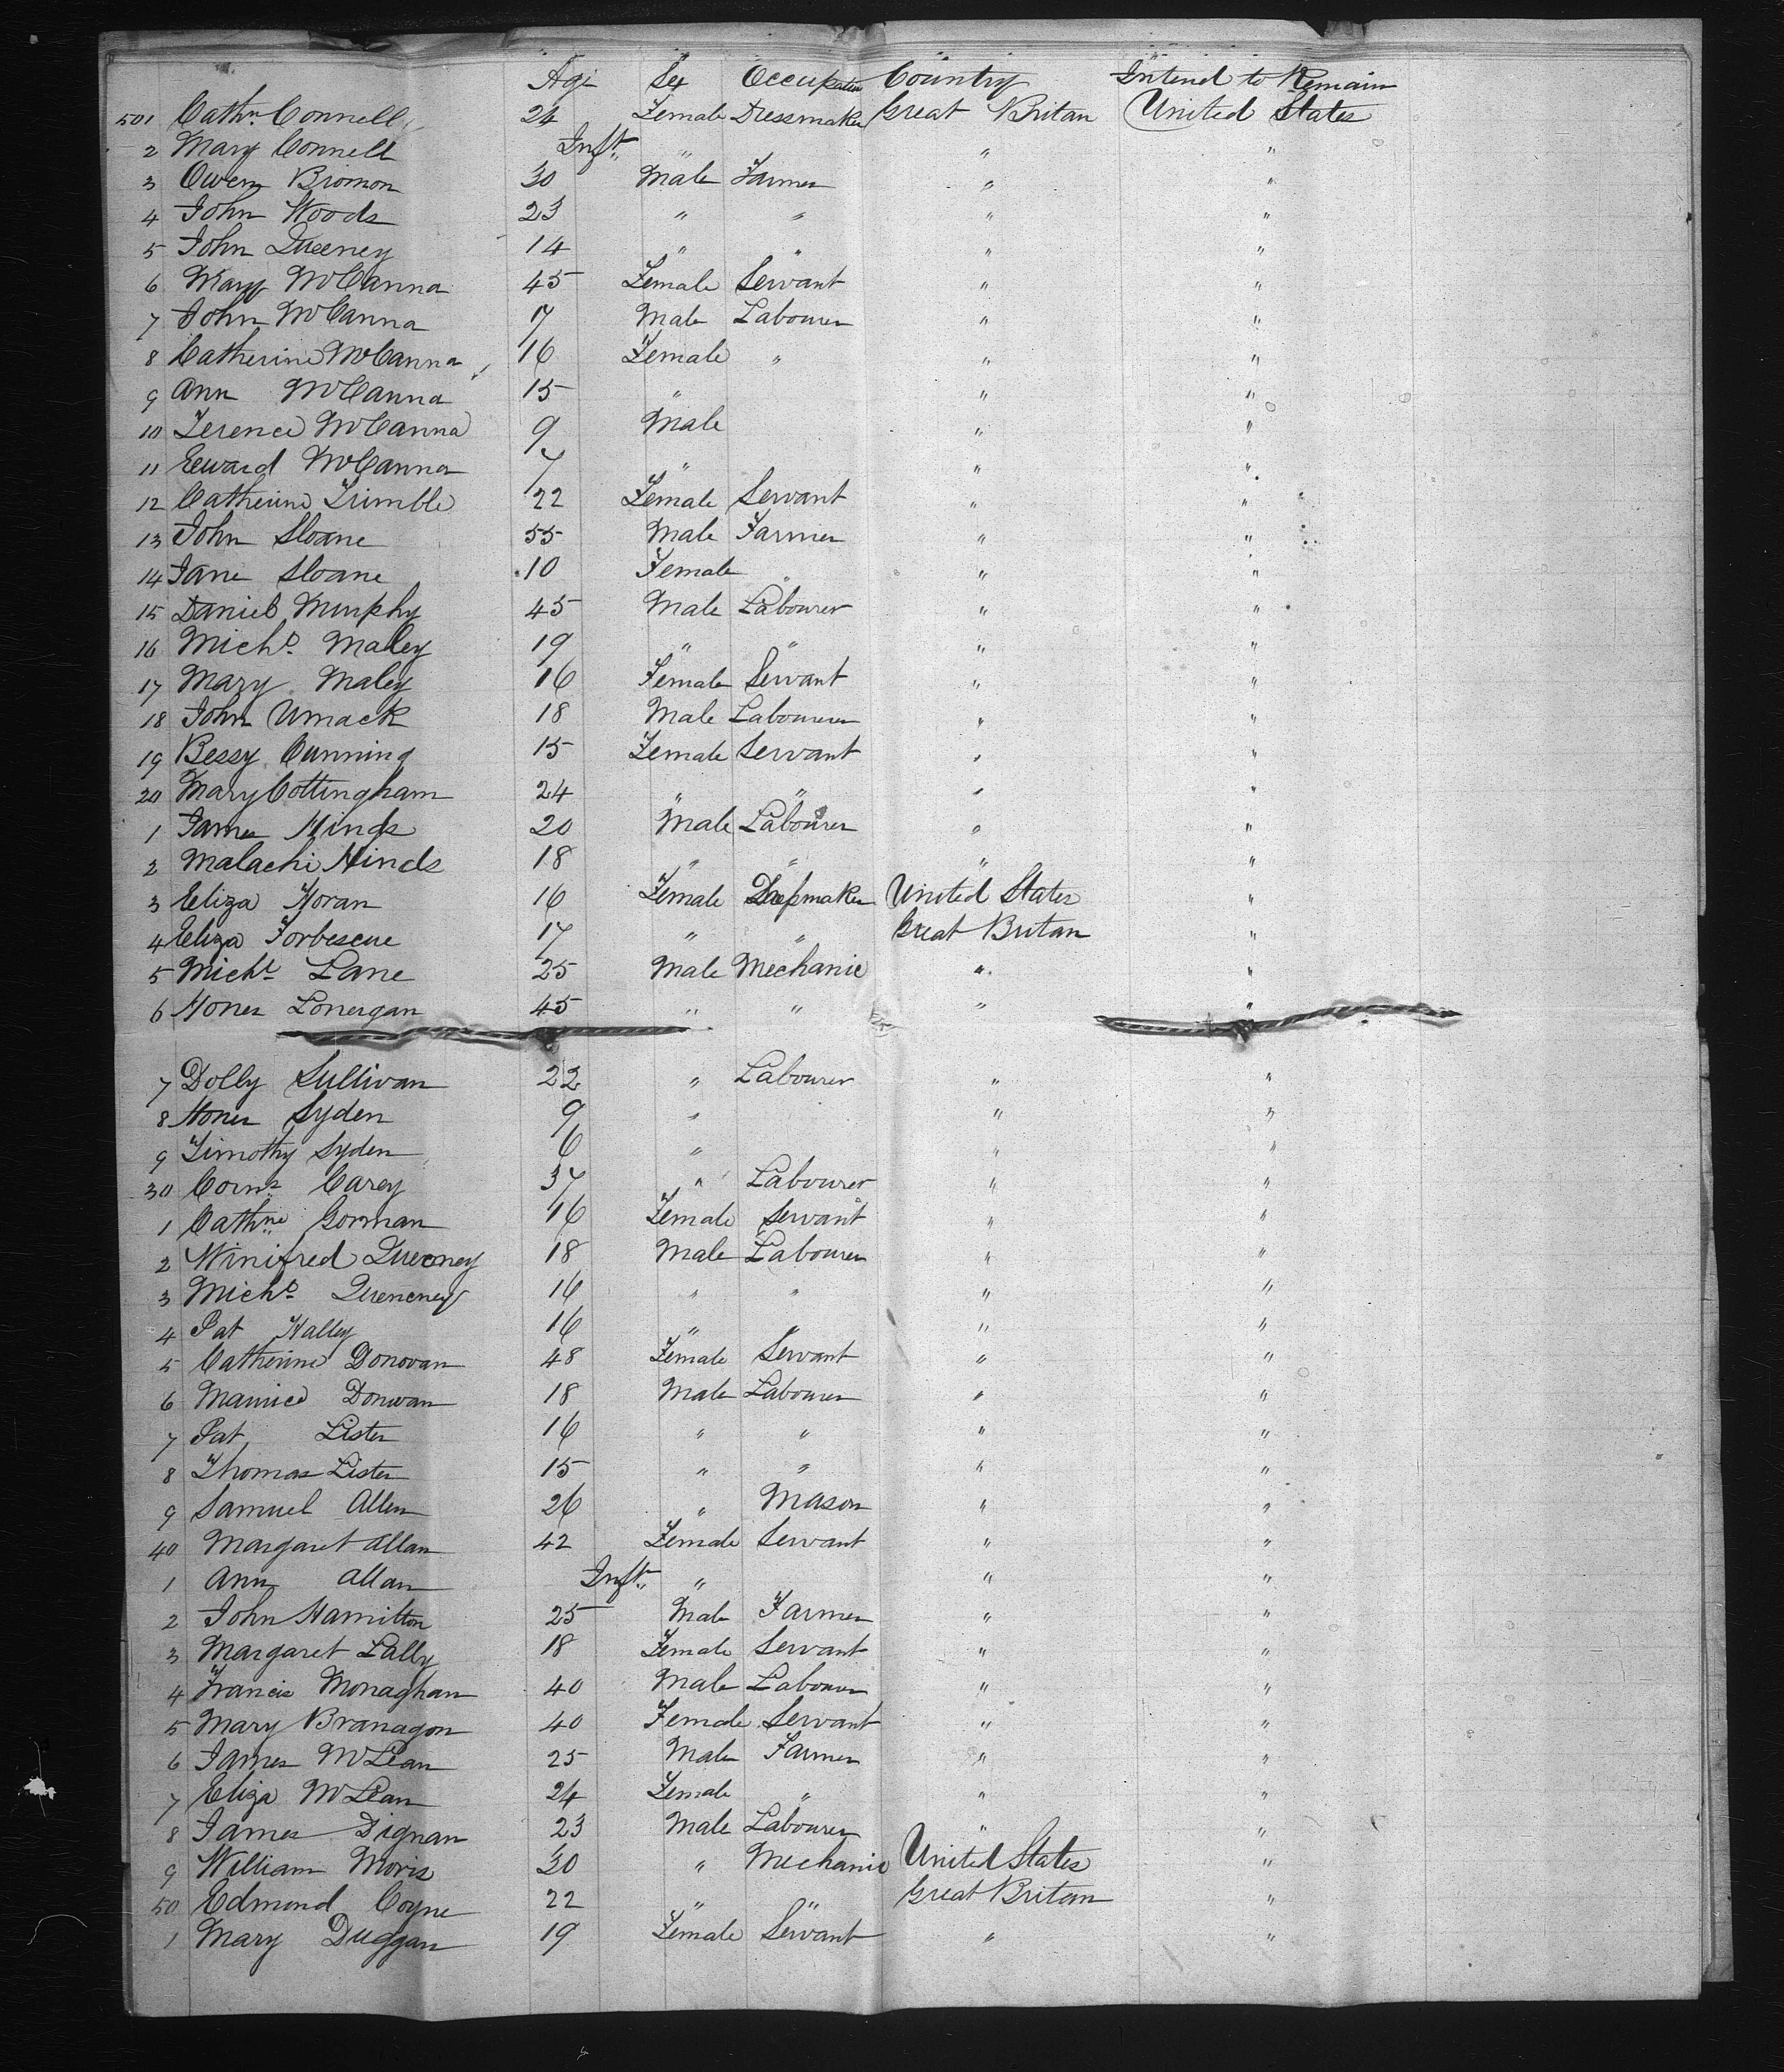 Age Sex Occupation Country Intend to Remain
501 Cathn Connell 24 Female Dressmaker Great Britan United States
2 Mary Connell Inft " " "
3 Owen Bromon 30 Male Farmer " "
4 John Woods 23 " " " "
5 John Queeney 14 " " " "
6 Mary McCanna 45 Female Servant " "
7 John McCanna 17 Male Labourer " "
8 Catherine McCanna 16 Female " " "
9 Ann McCanna 15 " " "
10 Terence McCanna 9 Male " "
11 Edward McCanna 7 " " "
12 Catherine Trimble 22 Female Servant " "
13 John Sloane 55 Male Farmer " "
14 Jane Sloane 10 Female " " "
15 Daniel Murphy 45 Male Labourer " "
16 Michl Maley 19 " " " "
17 Mary Maley 16 Female Servant " "
18 John Umack 18 Male Labourer " "
19 Bessy Cunning 15 Female Servant " "
20 Mary Cottingham 24 " " " "
1 James Hinds 20 Male Labourer " "
2 Malachi Hinds 18 " " " "
3 Eliza Horan 16 Female Dressmaker United States "
4 Eliza Forbescue 17 " " Great Britan "
5 Michl Lane 25 Male Mechanic " "
6 Honer Lonergan 45 " " " "
7 Dolly Sullivan 22 " Labourer " "
8 Honer Syden 9 " " "
9 Timothy Syden 6 " " "
30 Corns Carey 37 " Labourer " "
1 Cathne Gorman 16 Female Servant " "
2 Winifred Queeney 18 Male Labourer " "
3 Michl Queeney 16 " " " "
4 Pat Halley 16 " " " "
5 Catherine Donovan 48 Female Servant " "
6 Maurice Donovan 18 Male Labourer " "
7 Pat Lister 16 " " " "
8 Thomas Lister 15 " " " "
9 Samuel Allen 26 " Mason " "
40 Margaret Allan 42 Female Servant " "
1 Ann Allan Inft " " "
2 John Hamilton 25 Male Farmer " "
3 Margaret Lally 18 Female Servant " "
4 Francis Monaghan 40 Male Labourer " "
5 Mary Branagon 40 Female Servant " "
6 James McLean 25 Male Farmer " "
7 Eliza McLean 24 Female " " "
8 James Dignan 23 Male Labourer " "
9 William Moris 30 " Mechanic United States "
50 Edmond Coyne 22 " " Great Britan "
1 Mary Duggan 19 Female Servant " "